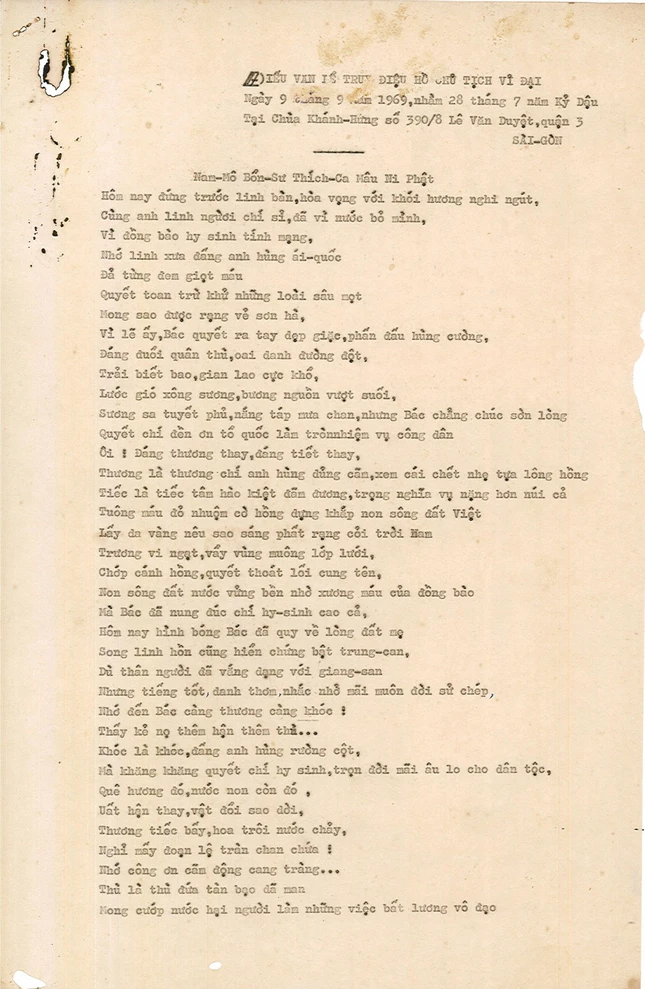 ĐIẾU VĂN LỄ TRUY ĐIỆU HỒ CHỦ TỊCH VĨ ĐẠI
Ngày 9 tháng 9 năm 1969,nhằm 28 tháng 7 năm Kỷ Dậu
Tại Chùa Khánh-Hưng số 390/8 Lê Văn Duyệt,quận 3
SÀI-GÒN
Nam-Mô Bổn-Sư Thích-Ca Mâu Ni Phật
Hôm nay đứng trước linh bàn,hòa vọng với khói hương nghi ngút,
Cùng anh linh người chí sỉ,đã vì nước bỏ mình,
Vì đồng bào hy sinh tính mạng,
Nhớ linh xưa đấng anh hùng ái-quốc
Đả từng đem giọt máu
Quyết toan trừ khử những loài sâu mọt
Mong sao được rạng vẻ sơn hà,
Vì lẽ ấy,Bác quyết ra tay dẹp giặc,phấn đấu hùng cường,
Đáng đuổi quân thù,oai danh đường đột,
Trải biết bao,gian lao cực khổ,
Lướt gió xông sương,bương nguồn vượt suối,
Sương sa tuyết phủ,nắng táp mưa chan,nhưng Bác chẳng chúc sờn lòng
Quyết chí đền ơn tổ quốc làm trònnhiệm vụ công dân
Ôi ! Đáng thương thay,đáng tiết thay,
Thương là thương chí anh hùng dủng cãm,xem cái chết nhẹ tựa lông hồng
Tiếc là tiếc tâm hào kiệt đãm đương,trọng nghĩa vụ nặng hơn núi cả
Tuông máu đỏ nhuộm cờ hồng dựng khắp non sông đất Việt
Lấy da vàng nêu sao sáng phất rạng cỏi trời Nam
Trương vi ngạt,vẩy vùng muông lớp lưới,
Chớp cánh hồng,quyết thoát lối cung tên,
Non sông đất nước vửng bền nhờ xương máu của đồng bào
Mà Bác đã nung đúc chí hy-sinh cao cả,
Hôm nay hình bóng Bác đã quy về lòng đất mẹ
Song linh hồn cũng hiển chứng bật trung-can,
Dù thân người đã vắng dạng với giang-san
Nhưng tiếng tốt,danh thơm,nhắc nhở mãi muôn đời sử chép,
Nhớ đến Bác càng thương càng khóc !
Thấy kẻ nọ thêm hận thêm thù...
Khóc là khóc,đấng anh hùng rường cột,
Mà khăng khăng quyết chí hy sinh,trọn đời mãi âu lo cho dân tộc,
Quê hương đó,nước non còn đó ,
Uất hận thay,vật đổi sao dời,
Thương tiếc bấy,hoa trôi nước chảy,
Nghỉ mấy đoạn lệ tràn chan chứa !
Nhớ công ơn cãm động cang tràng...
Thù là thù đứa tàn bạo dã man
Mong cướp nước hại người làm những việc bất lương vô đạo